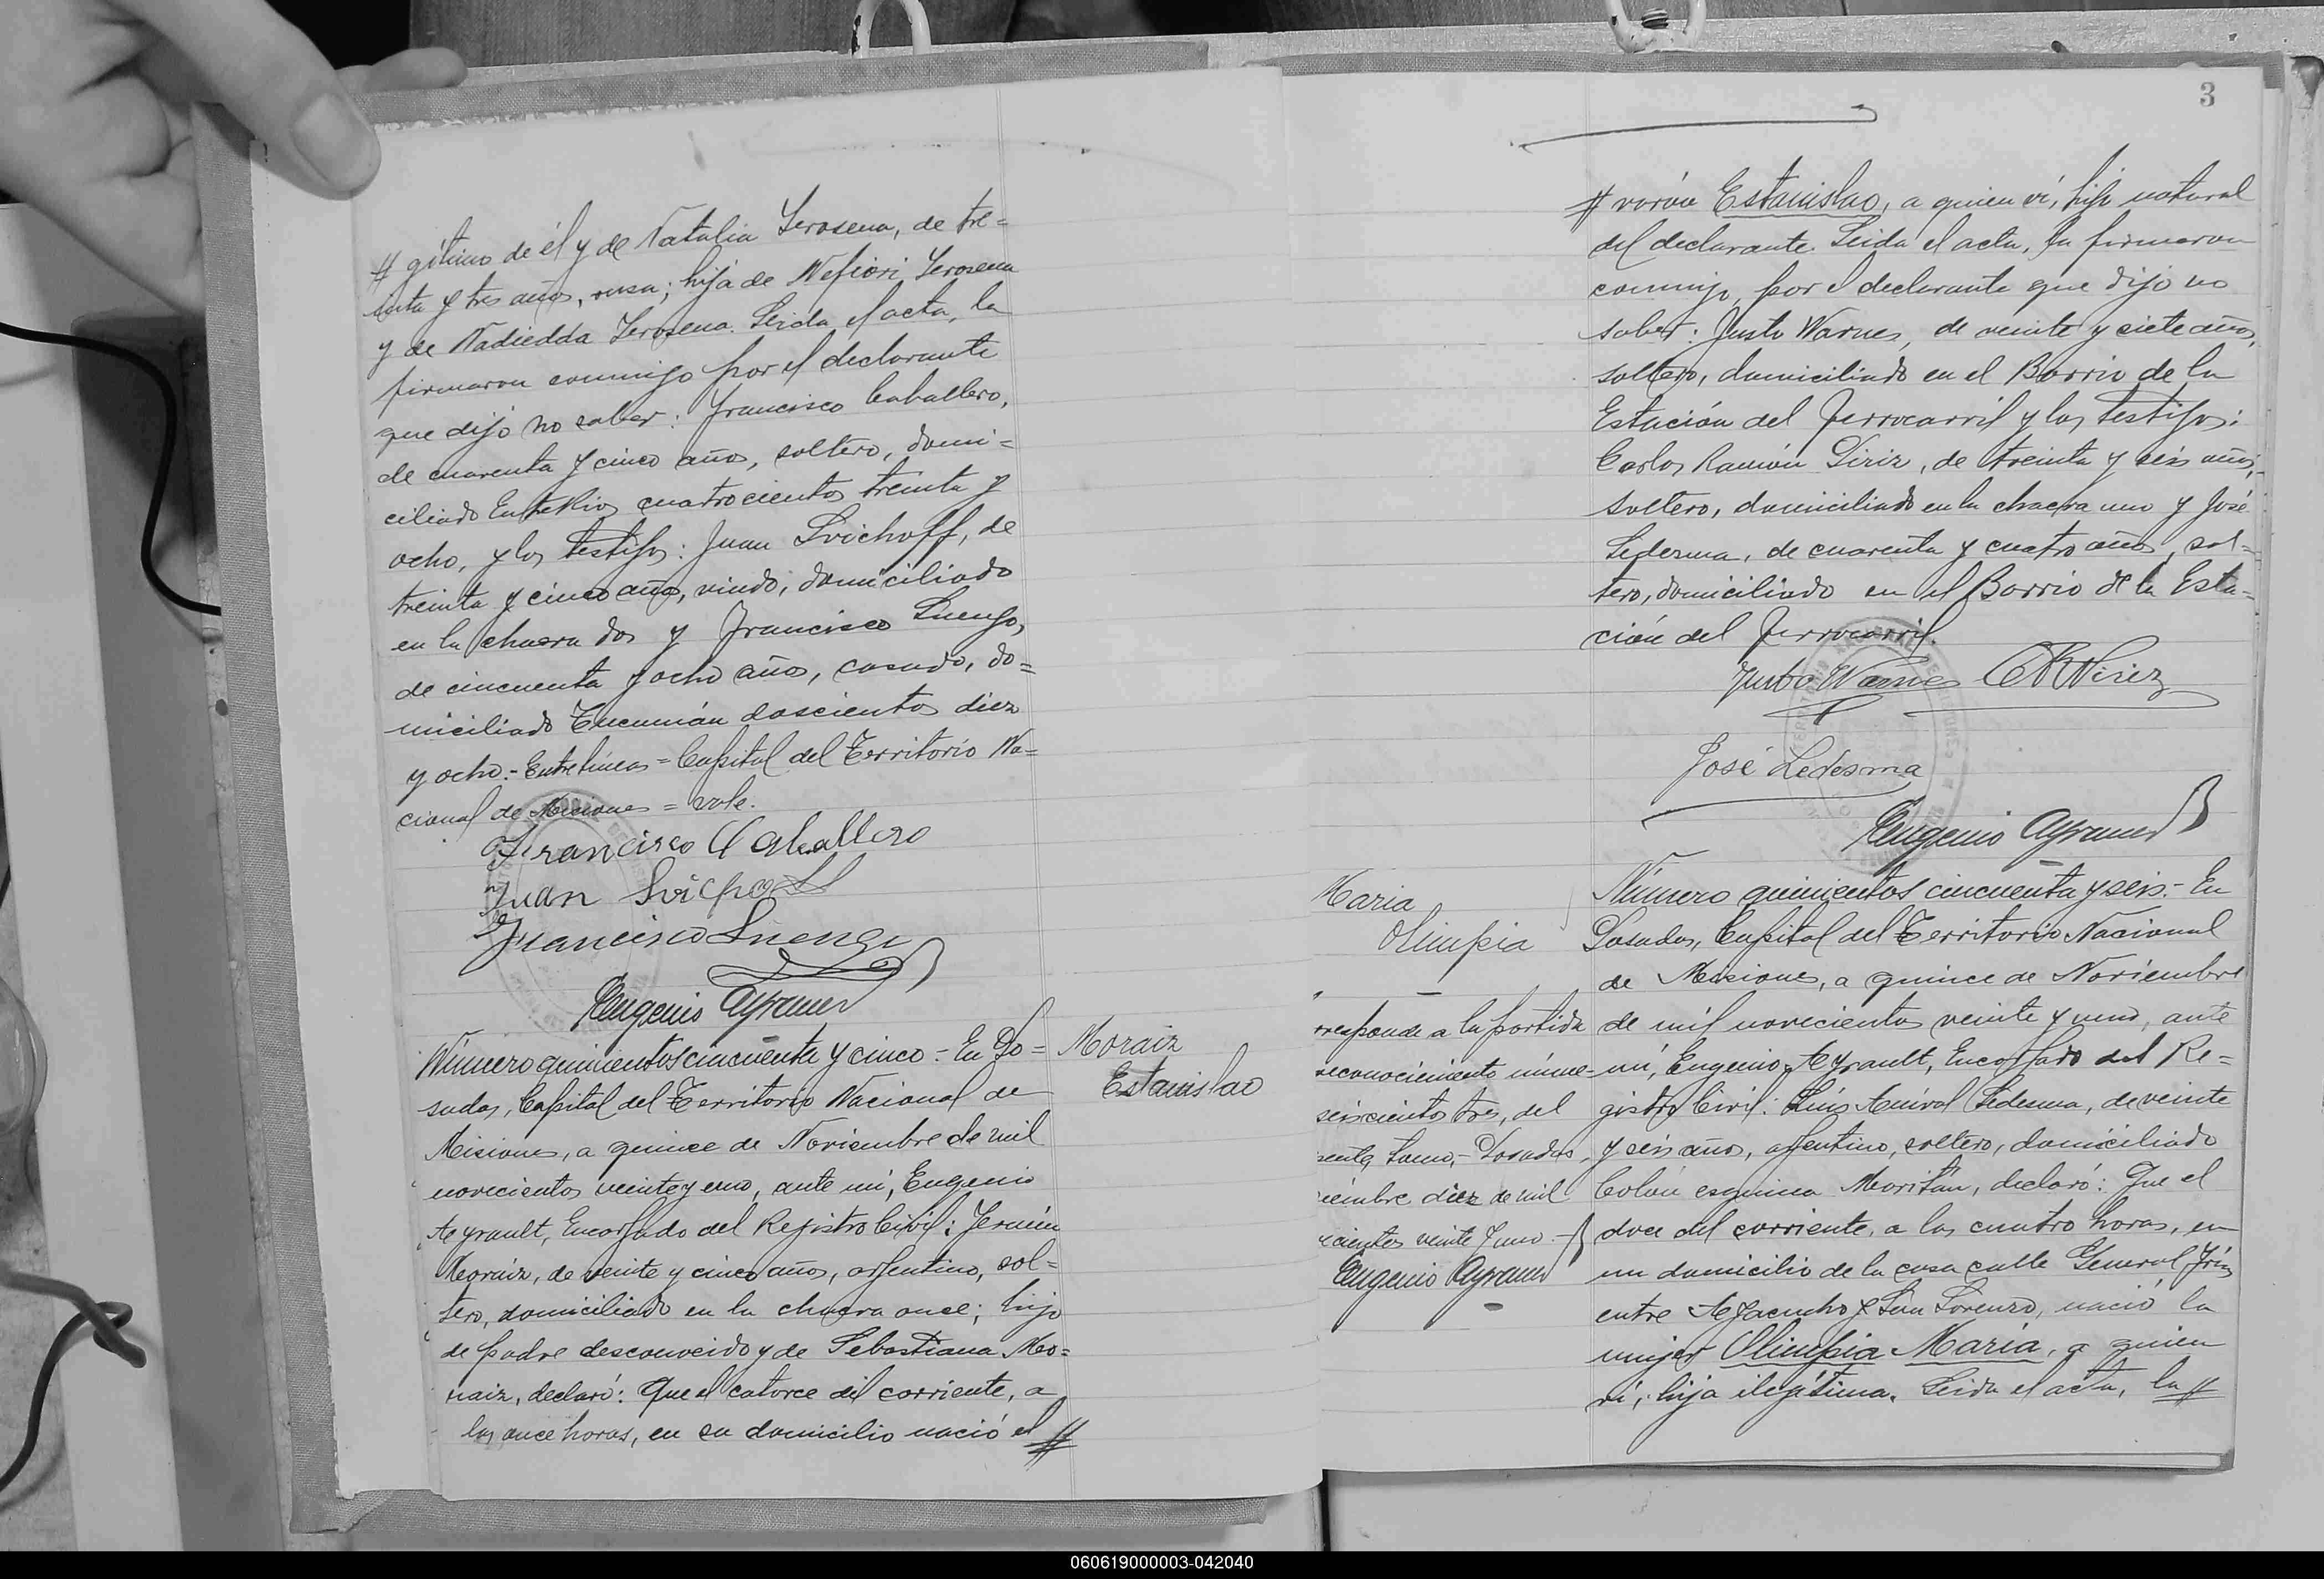 # gítimo de él y de Natalia Yerosena, de tre=
inta y tres años, rusa; hija de Nefiori Yerosena
y de Nadiedda Yerosena. Leida el acta, la
firmaron conmigo por el declarante
que dijo no saber: Francisco Caballero,
de cuarenta y cinco años, soltero, domi=
ciliado Entre Rios cuatrocientos treinta y
ocho, y los testigos: Juan Svichoff, de
treinta y cinco años, viudo, domiciliado
en la chacra dos y Francisco Luengo,
de cincuenta y ocho años, casado, do=
miciliado Tucumán doscientos diez
y ocho.- Entrelíneas = Capital del Territorio Na=
cional de Misiones = vale.
Francisco Caballero
Juan
Francisco Luengo
Eugenio Ayrault
Número quinientos cincuenta y cinco.- En Po=
sadas, Capital del Territorio Nacional de
Misiones, a quince de Noviembre de mil
novecientos veinte y uno, ante mi, Eugenio
Ayrault, Encargado del Registro Civil; Fermín
Moraiz, de veinte y cinco años, argentino, sol=
tero, domiciliado en la chacra once; hijo
de padre desconocido y de Sebastiana Mo=
raiz, declaró: Que el catorce del corriente, a
las once horas, en su domicilio nació el #
Moraiz
Estanislao
3
# varón Estanislao, a quien ví, hijo natural
del declarante. Leida el acta, la firmaron
conmigo, por el declarante que dijo no
saber: Justo Warnes, de veinte y siete años,
soltero, domiciliado en el Barrio de la
Estación del Ferrocarril y los testigos:
Carlos Ramón Niriz, de treinta y seis años,
soltero, domiciliado en la chacra uno y José
Ledesma, de cuarenta y cuatro años, sol=
tero, domiciliado en el Barrio de la Esta=
ción del Ferrocarril.
Justo Warnes
José Ledesma
Eugenio Ayrault
Maria
Olimpia
rresponde a la partida
reconocimiento núme=
seiscientos tres, del
sente tomo.- Posadas,
iembre diez de mil
ecientos veinte y uno.-
Eugenio Ayrault
Número quinientos cincuenta y seis.- En
Posadas, Capital del Territorio Nacional
de Misiones, a quince de Noviembre
de mil novecientos veinte y uno, ante
mi, Eugenio Ayrault, Encargado del Re=
gistro Civil: Luis Anival Ledesma, de veinte
y seis años, argentino, soltero, domiciliado
Colón esquina Moritan, declaró: Que el
doce del corriente, a las cuatro horas, en
un domicilio de la casa calle General Frías
entre Ayacucho y San Lorenzo, nació la
mujer Olimpia Maria, a quien
ví, hija ilegítima. Leida el acta, la #
060619000003-042040